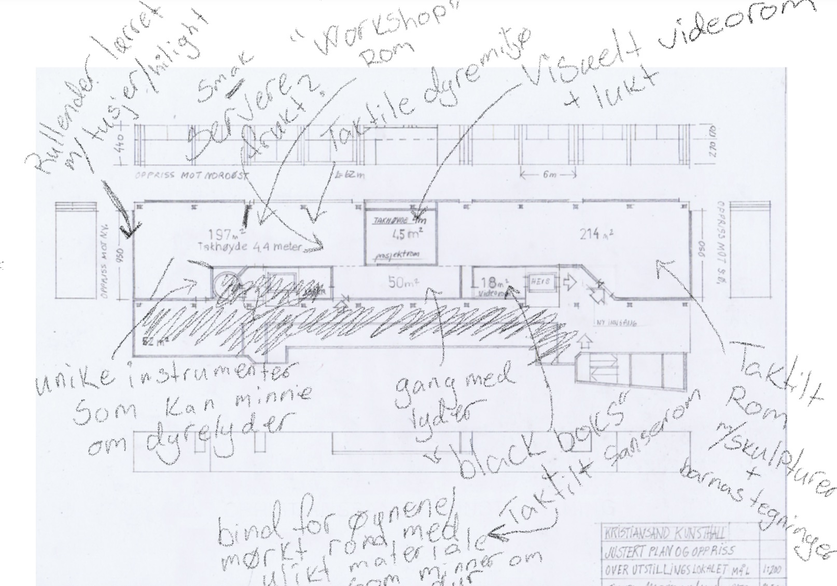 Rullender lerret
m/ tusjer/hilight
Smak
Servere
frukt?
"Workshop"
Rom
Taktile dyremiljø
Visuelt videorom
+ lukt
440
OPPRISS MOT NORDØST
6m
270
OPPRISS MOT NV.
950
197 m²
Takhøyde 4.4 meter
TAKHØYDE 4m
45 m²
prosjektrom
214 m²
950
OPPRISS MOT S.Ø.
50 m²
18 m²
Videorom
HEIS
NY INNGANG
52 m²
unike instrumenter
som kan minne
om dyrelyder
gang med
lyder
"black boks"
Taktilt sanserom
Taktilt
Rom
m/skulpturer
+
barnas tegninger
bind for øynene/
mørkt rom med
ulikt materiale
som minner om
KRISTIANSAND KUNSTHALL
JUSTERT PLAN OG OPPRISS
OVER UTSTILLINGSLOKALET MÅL 1:200